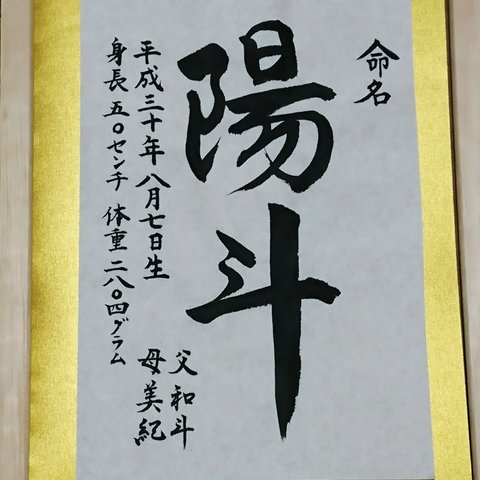 命名
陽斗
平成三十年八月七日生
身長五〇センチ 体重二八〇四グラム
父 和斗
母 美紀